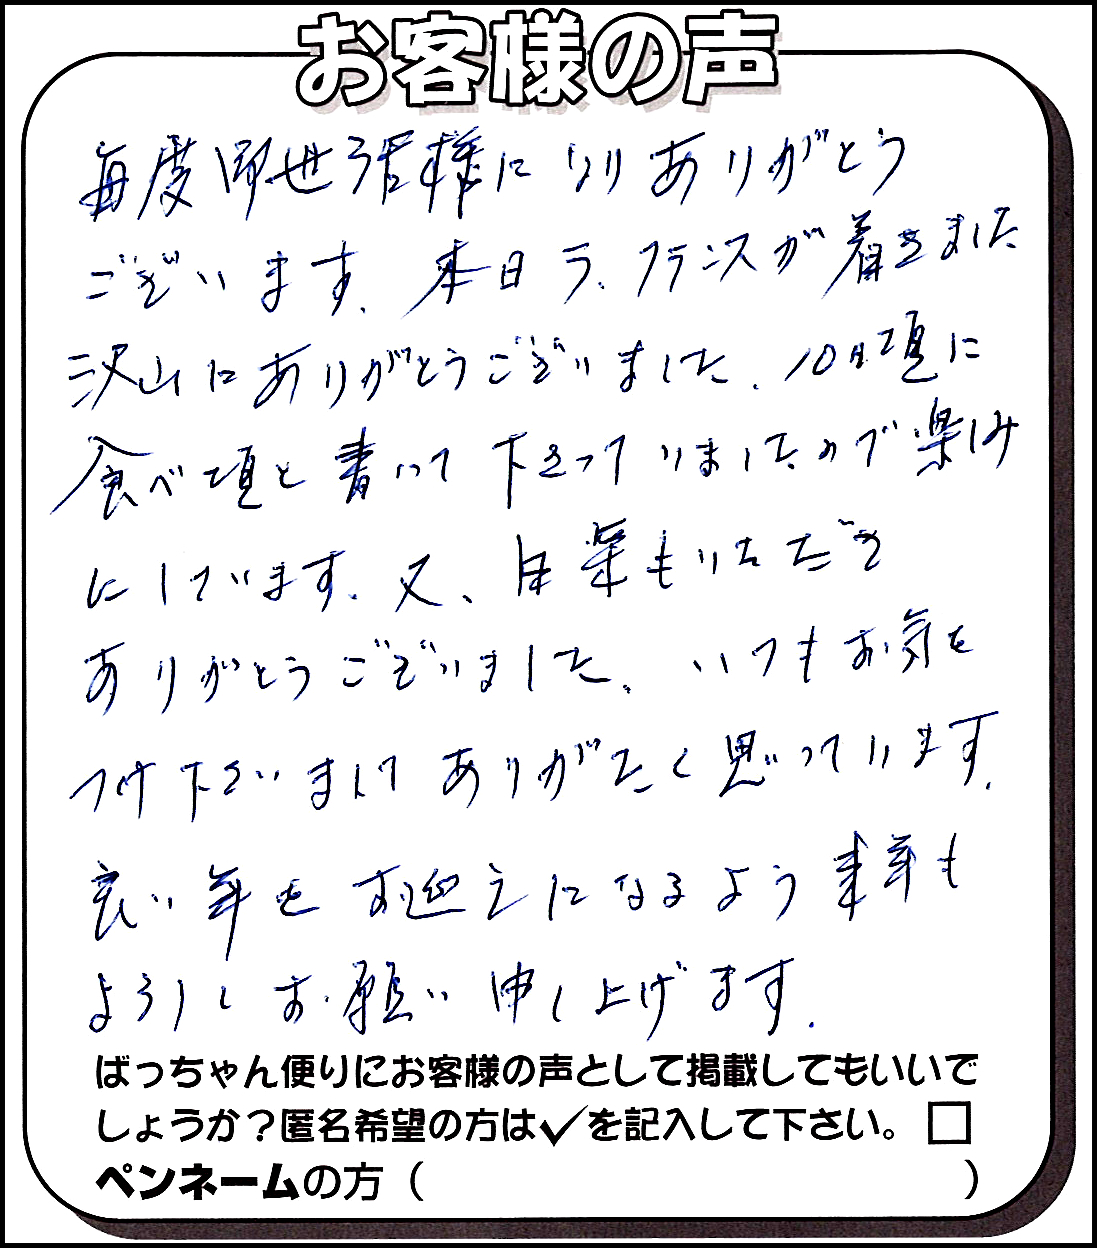 お客様の声
毎度御世話様になりありがとう
ございます。本日ラ・フランスが着きました
沢山にありがとうございました。10日頃に
食べ頃と書いて下さっていましたので楽しみ
にしています。又、目薬もいただき
ありがとうございました。いつもお気を
つけ下さいましてありがたく思っています。
良い年をお迎えになるよう来年も
よろしくお願い申し上げます。
ばっちゃん便りにお客様の声として掲載してもいいで
しょうか？匿名希望の方は✓を記入して下さい。□
ペンネームの方（　　　　　　　　　　）